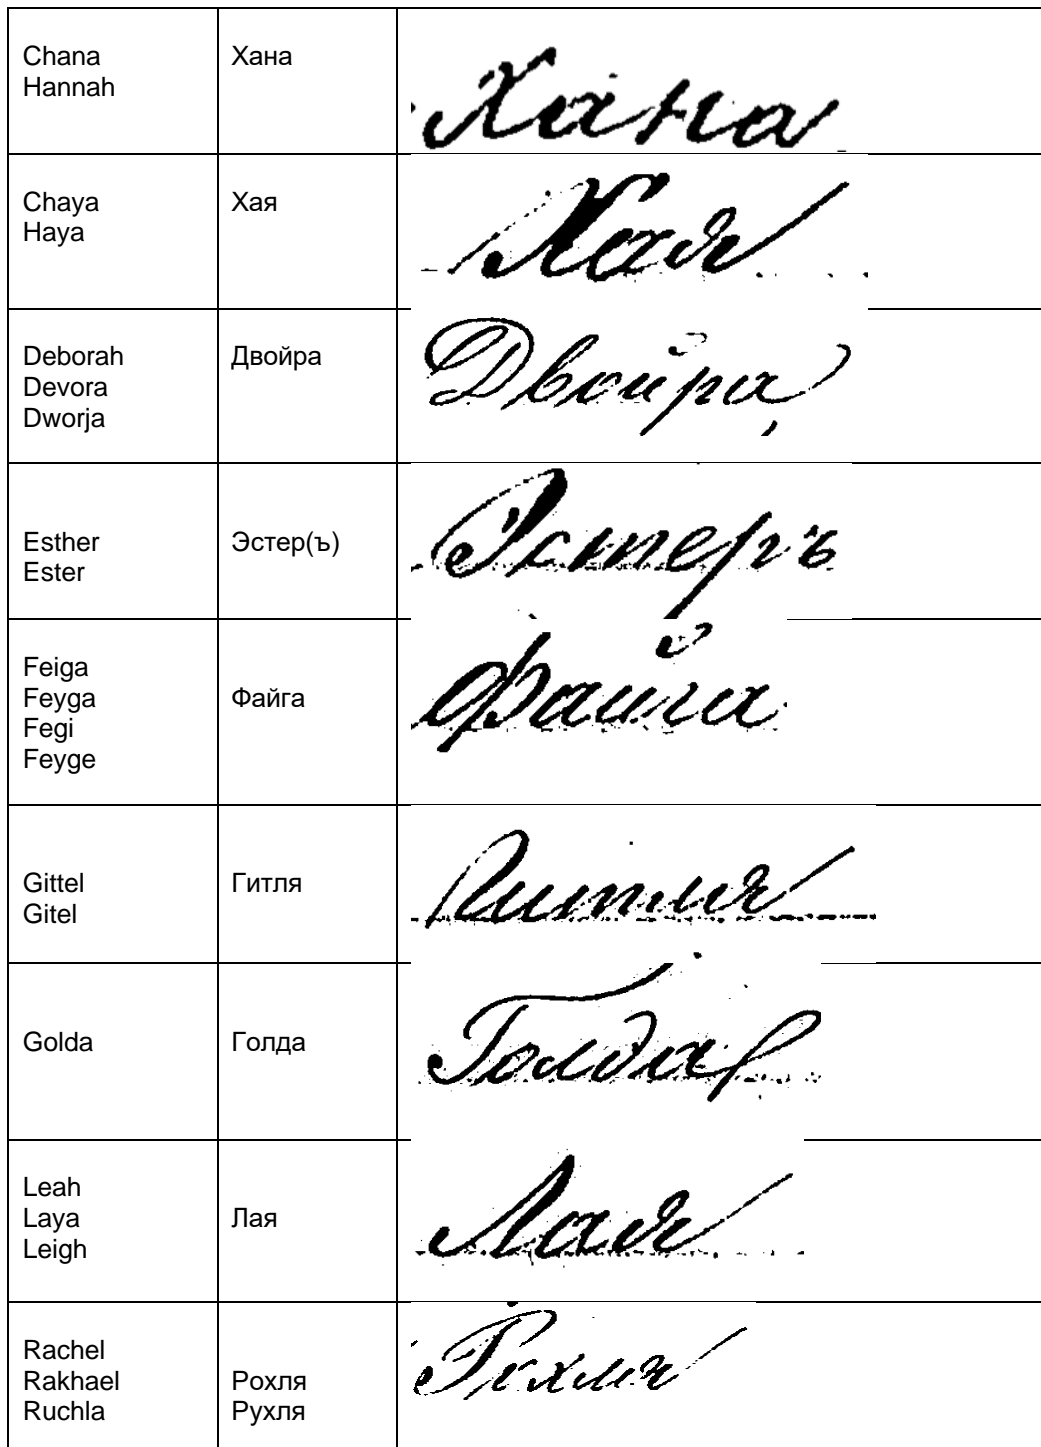 Chana
Hannah
Хана
Хана
Chaya
Haya
Хая
Хая
Deborah
Devora
Dworja
Двойра
Двойра,
Esther
Ester
Эстер(ъ)
Эстеръ
Feiga
Feyga
Fegi
Feyge
Файга
Файга
Gittel
Gitel
Гитля
Гитля
Golda
Голда
Голда
Leah
Laya
Leigh
Лая
Лая
Rachel
Rakhael
Ruchla
Рохля
Рухля
Рохля